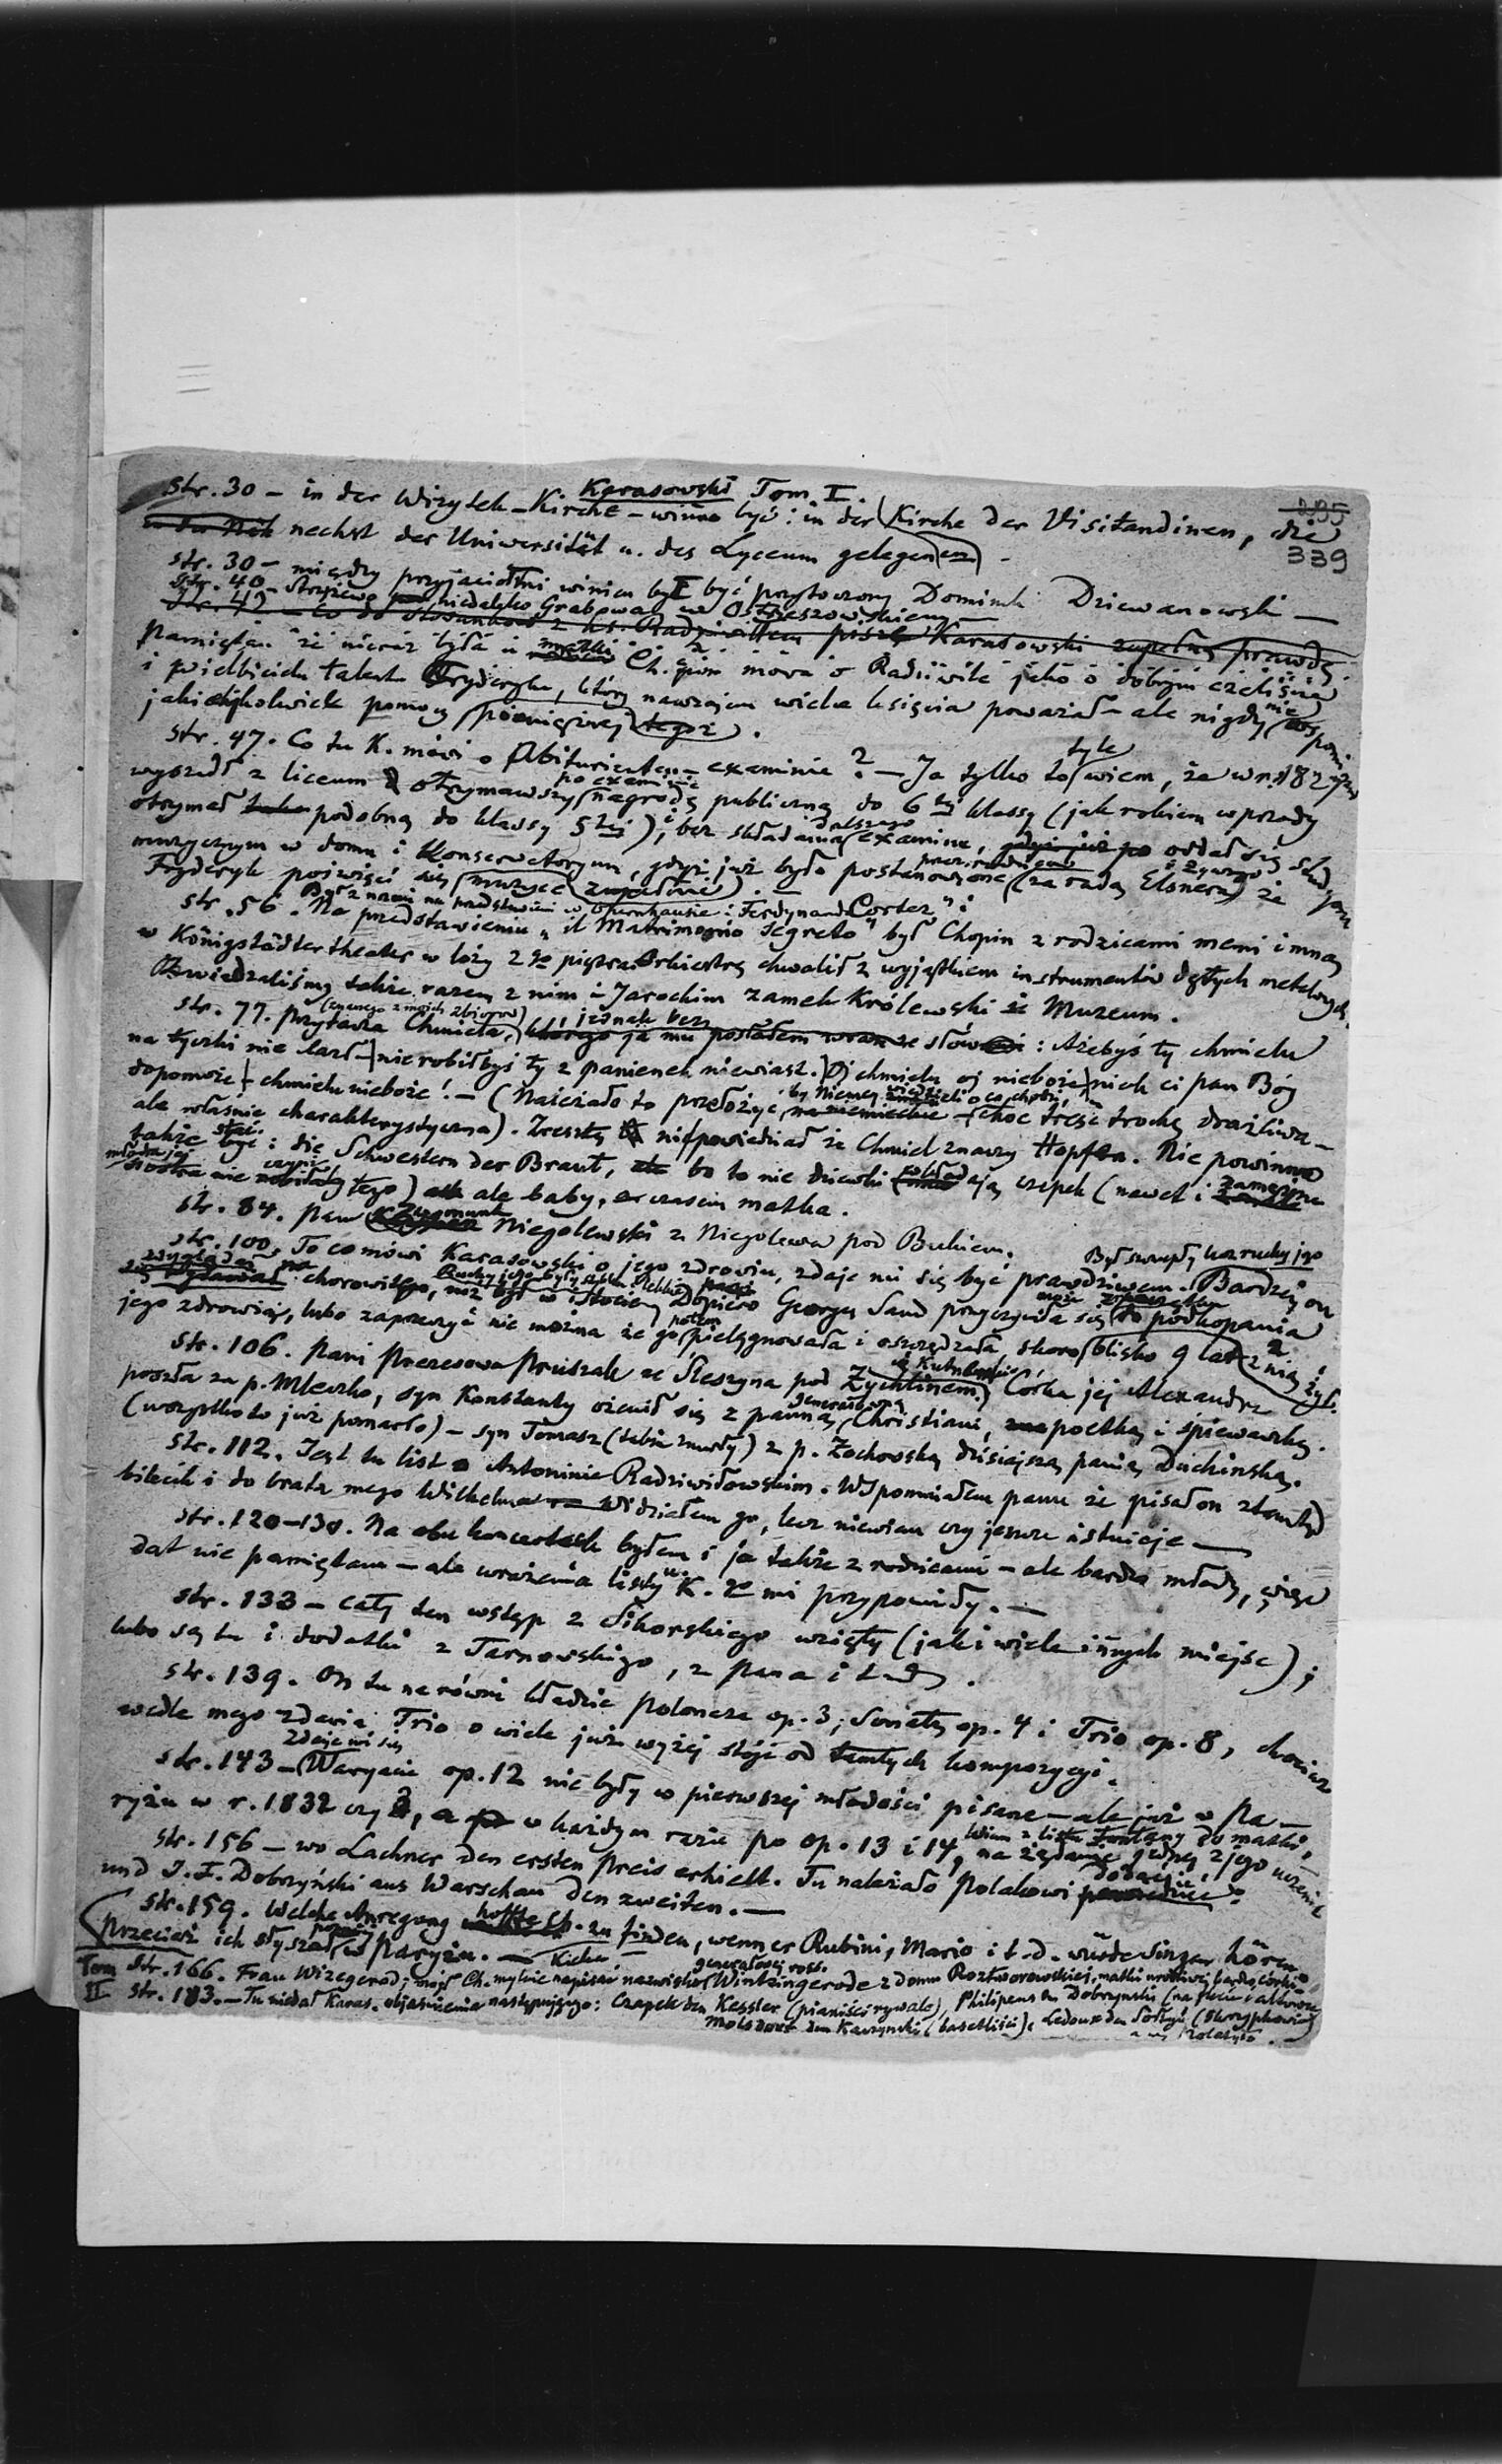 Karasowski Tom. I.
335
339
str. 30 – in der Wizytek-Kirche – winno być: in der Kirche der Visitandinen, die
in der Näh nechst der Universität u. des Lyceum gelegen(en) –
str. 30 – między przyjaciółmi winien był być przytoczony Dominik Dziewanowski –
str. 40 – Strzyżewo niedaleko Grabowa, w Ostrzeszowskiem
Karasowski zupełną prawdę.
Pamiętam że nieraz była u matki Ch. i mówi o Radziwile jako o dobrym
i wielbicielu talentu Fryderyka, który nawzajem wielce księcia poważał – ale nigdy nie
jakiejkolwiek pomocy pieniężnej tegoż.
str. 47. Co tu K. mówi o Abiturienten-examinie? – Ja tylko to tyle wiem, że w r. 182
wyszedł z liceum otrzymawszy po examinie nagrodę publiczną do 6tej klassy (jak rokiem wprzódy
otrzymał podobną do klassy 5tej); i bez składania dalszego examinu, oddał się
muzycznym w domu i Konserwatoryum, gdyż już było postanowione (za radą Elsnera i Żywnego) że
Fryderyk poświęci się muzyce zupełnie).
Był z nami na przedstawieniu w Opernhausie: Ferdynand Cortez";
str. 56. Na przedstawieniu „il Matrimonio segreto" był Chopin z rodzicami memi i mną
w Königstädter theater w loży 2go piętra. Orkiestrę chwalił z wyjątkiem instrumentów dętych metalowych.
Zwiedzaliśmy także razem z nim i Jarockim zamek Królewski i Muzeum.
str. 77. przytacza Chmiela, (wziętego z moich zbiorów) jednak bez słów: Ażebyś ty chmielu
na tyczki nie lazł – nie robiłbyś ty z panienek niewiast. Oj chmielu oj nieboże – niech ci pan Bóg
dopomoże – chmielu nieboże! – (Należało to przełożyć, by Niemcy wiedzieli o co chodzi, na niemieckie – choć treść trochę drażliwa –
ale właśnie charakterystyczna). Zresztą nie powiedział że Chmiel znaczy Hopfen. Nie powinno
także stać: die Schwestern der Braut, bo to nie dziewki wkładają czepek (nawet i zamężna
młodsza jej siostra nie czyni tego) ale baby, a czasem matka.
str. 84. pan Zygmunt Niegolewski z Niegolewa pod Bukiem.
Był szczupły lecz ruchy jego
str. 100. To co mówi Karasowski o jego zdrowiu, zdaje mi się być prawdziwem. Bardziej on
wyglądał na chorowitego, niż był w istocie. Dopiero George Sand przyczyniła się może do podkopania
jego zdrowia, lubo zaprzeczyć nie można że go potem pielęgnowała i oszczędzała, skoro blisko 9 lat z nią żył.
str. 106. Pani prezesowa Pruszak ze Sleszyna pod Żychlinem w Kutnowskiem. Córka jej Alexandra
poszła za p. Mleczko, syn Konstanty ożenił się z panną generałówną Christiani, poetką i śpiewaczką.
(wszystko to już pomarło) – syn Tomasz (także zmarły) z p. Żochowską dzisiejszą panią Duchińską.
str. 112. Jest tu list o Antoninie Radziwiłowskim. Wspomniałem panu że pisał on ztamtąd
bilecik i do brata mego Wilhelma – Widziałem go, lecz niewiem czy jeszcze istnieje –
str. 120–130. Na obu koncertach byłem i ja także z rodzicami – ale bardzo młody, więc
dat nie pamiętam – ale wrażenia listy u K. mi przypomniały. –
str. 133 – cały ten wstęp z Sikorskiego wzięty (jak i wiele innych miejsc);
lubo są tu i dodatki z Tarnowskiego, z Pana i t. d.
str. 139. On tu narówni kładzie poloneza op. 3; Sonatę op. 4 i Trio op. 8, chociaż
wedle mego zdania Trio o wiele już wyżej stoi od tamtych kompozycyi.
str. 143 – Zdaje mi się Waryacie op. 12 nie były w pierwszej młodości pisane – ale już w Pa-
ryżu w r. 1832 czy 3, w każdym razie po op. 13 i 14, Wiem z listu Fontany do matki, na żądanie jednej z jego uczenic
str. 156 – wo Lachner den ersten Preis erhielt. Tu należało Polakowi dodać:
und J. F. Dobrzyński aus Warschau den zweiten. –
str. 159. Welche Anregung hoffte Ch. zu finden, wenn er Rubini, Mario i t. d. würde singen hören
przecież ich słyszał w Paryżu. –
Tom II str. 166. Frau Wizegerod; mógł Ch. mylnie napisać nazwisko generałowej ross. Wintzingerode z domu Rostworowskiej, matki
str. 183. – Tu niedał Karas. objaśnienia następującego: Czapek den Kessler (pianiści rywale), Philipeus den Dobrzyński
Molsdorf den Kaczyński (basetliści); Ledoux den Sołtyk (skrzypkowie)